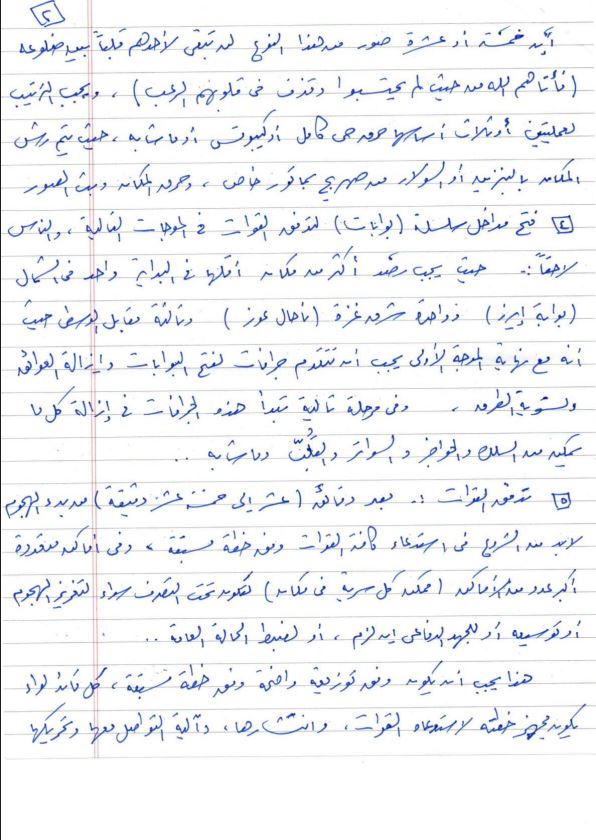 ٣
أيه خمسة أو عشرة صور من هذا النوع لن تبقى لأحدهم قلباً بين ضلوعه
(فأتاهم الله من حيث لم يحتسبوا وقذف في قلوبهم الرعب) ، ويجب الترتيب
لعمليتين أو ثلاث أساسها حرق حي كامل أو كيبوتس أو ما شابه، حيث يتم رش
المكان بالبنزين أو السولار من صهريج بماتور خاص ، وحرق المكان وبث الصور
٤ فتح مداخل سلسلة (بوابات) لتدفق القوات في الموجات التالية ، والناس
لاحقاً :. حيث يجب رصد أكثر من مكان أقلها في البداية واحد في الشمال
(بوابة إيرز) وواحدة شرق غزة (ناحال عوز) وثالثة مقابل الوسطى حيث
أنه مع نهاية الموجة الأولى يجب أن تتقدم جرافات لفتح البوابات وإزالة العوائق
وتسوية الطرق ، وفي مرحلة تالية تبدأ هذه الجرافات في إزالة كل ما
يمكن من السلك والحواجز والسواتر وما شابه ..
٥ تدفق القوات :. بعد دقائق (عشر إلى خمسة عشر دقيقة) من بدء الهجوم
لابد من الشروع في استدعاء كافة القوات وفق خطة مسبقة ، وفي أماكن متعددة
أكبر عدد من الأماكن (ممكن كل سرية في مكان) لتكون تحت التصرف سواء لتعزيز الهجوم
أو توسيعه أو للجهد الدفاعي إن لزم ، أو لضبط الحالة العامة ..
هذا يجب أن يكون وفق توزيعة واضحة وفق خطة مسبقة ، كل قائد لواء
يكون مجهز خطته لاستدعاء القوات ، وانتشارها، وآلية التواصل معها وتحريكها